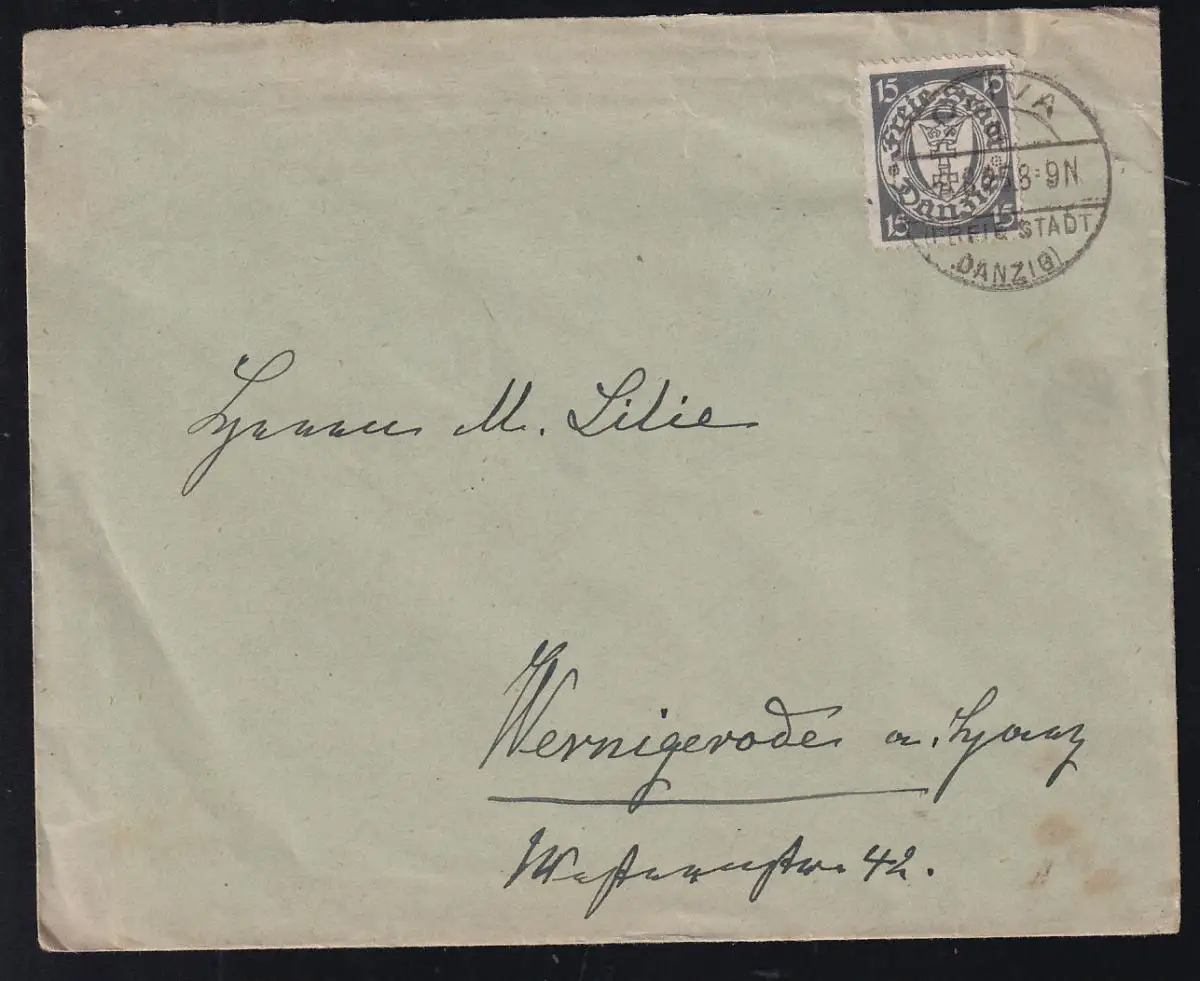 15 15
Freie Stadt
Danzig
15 15
8-9N
(FREIE STADT
DANZIG)
Herrn M. Lilie
Wernigerode a. Harz
Westernstr. 42.